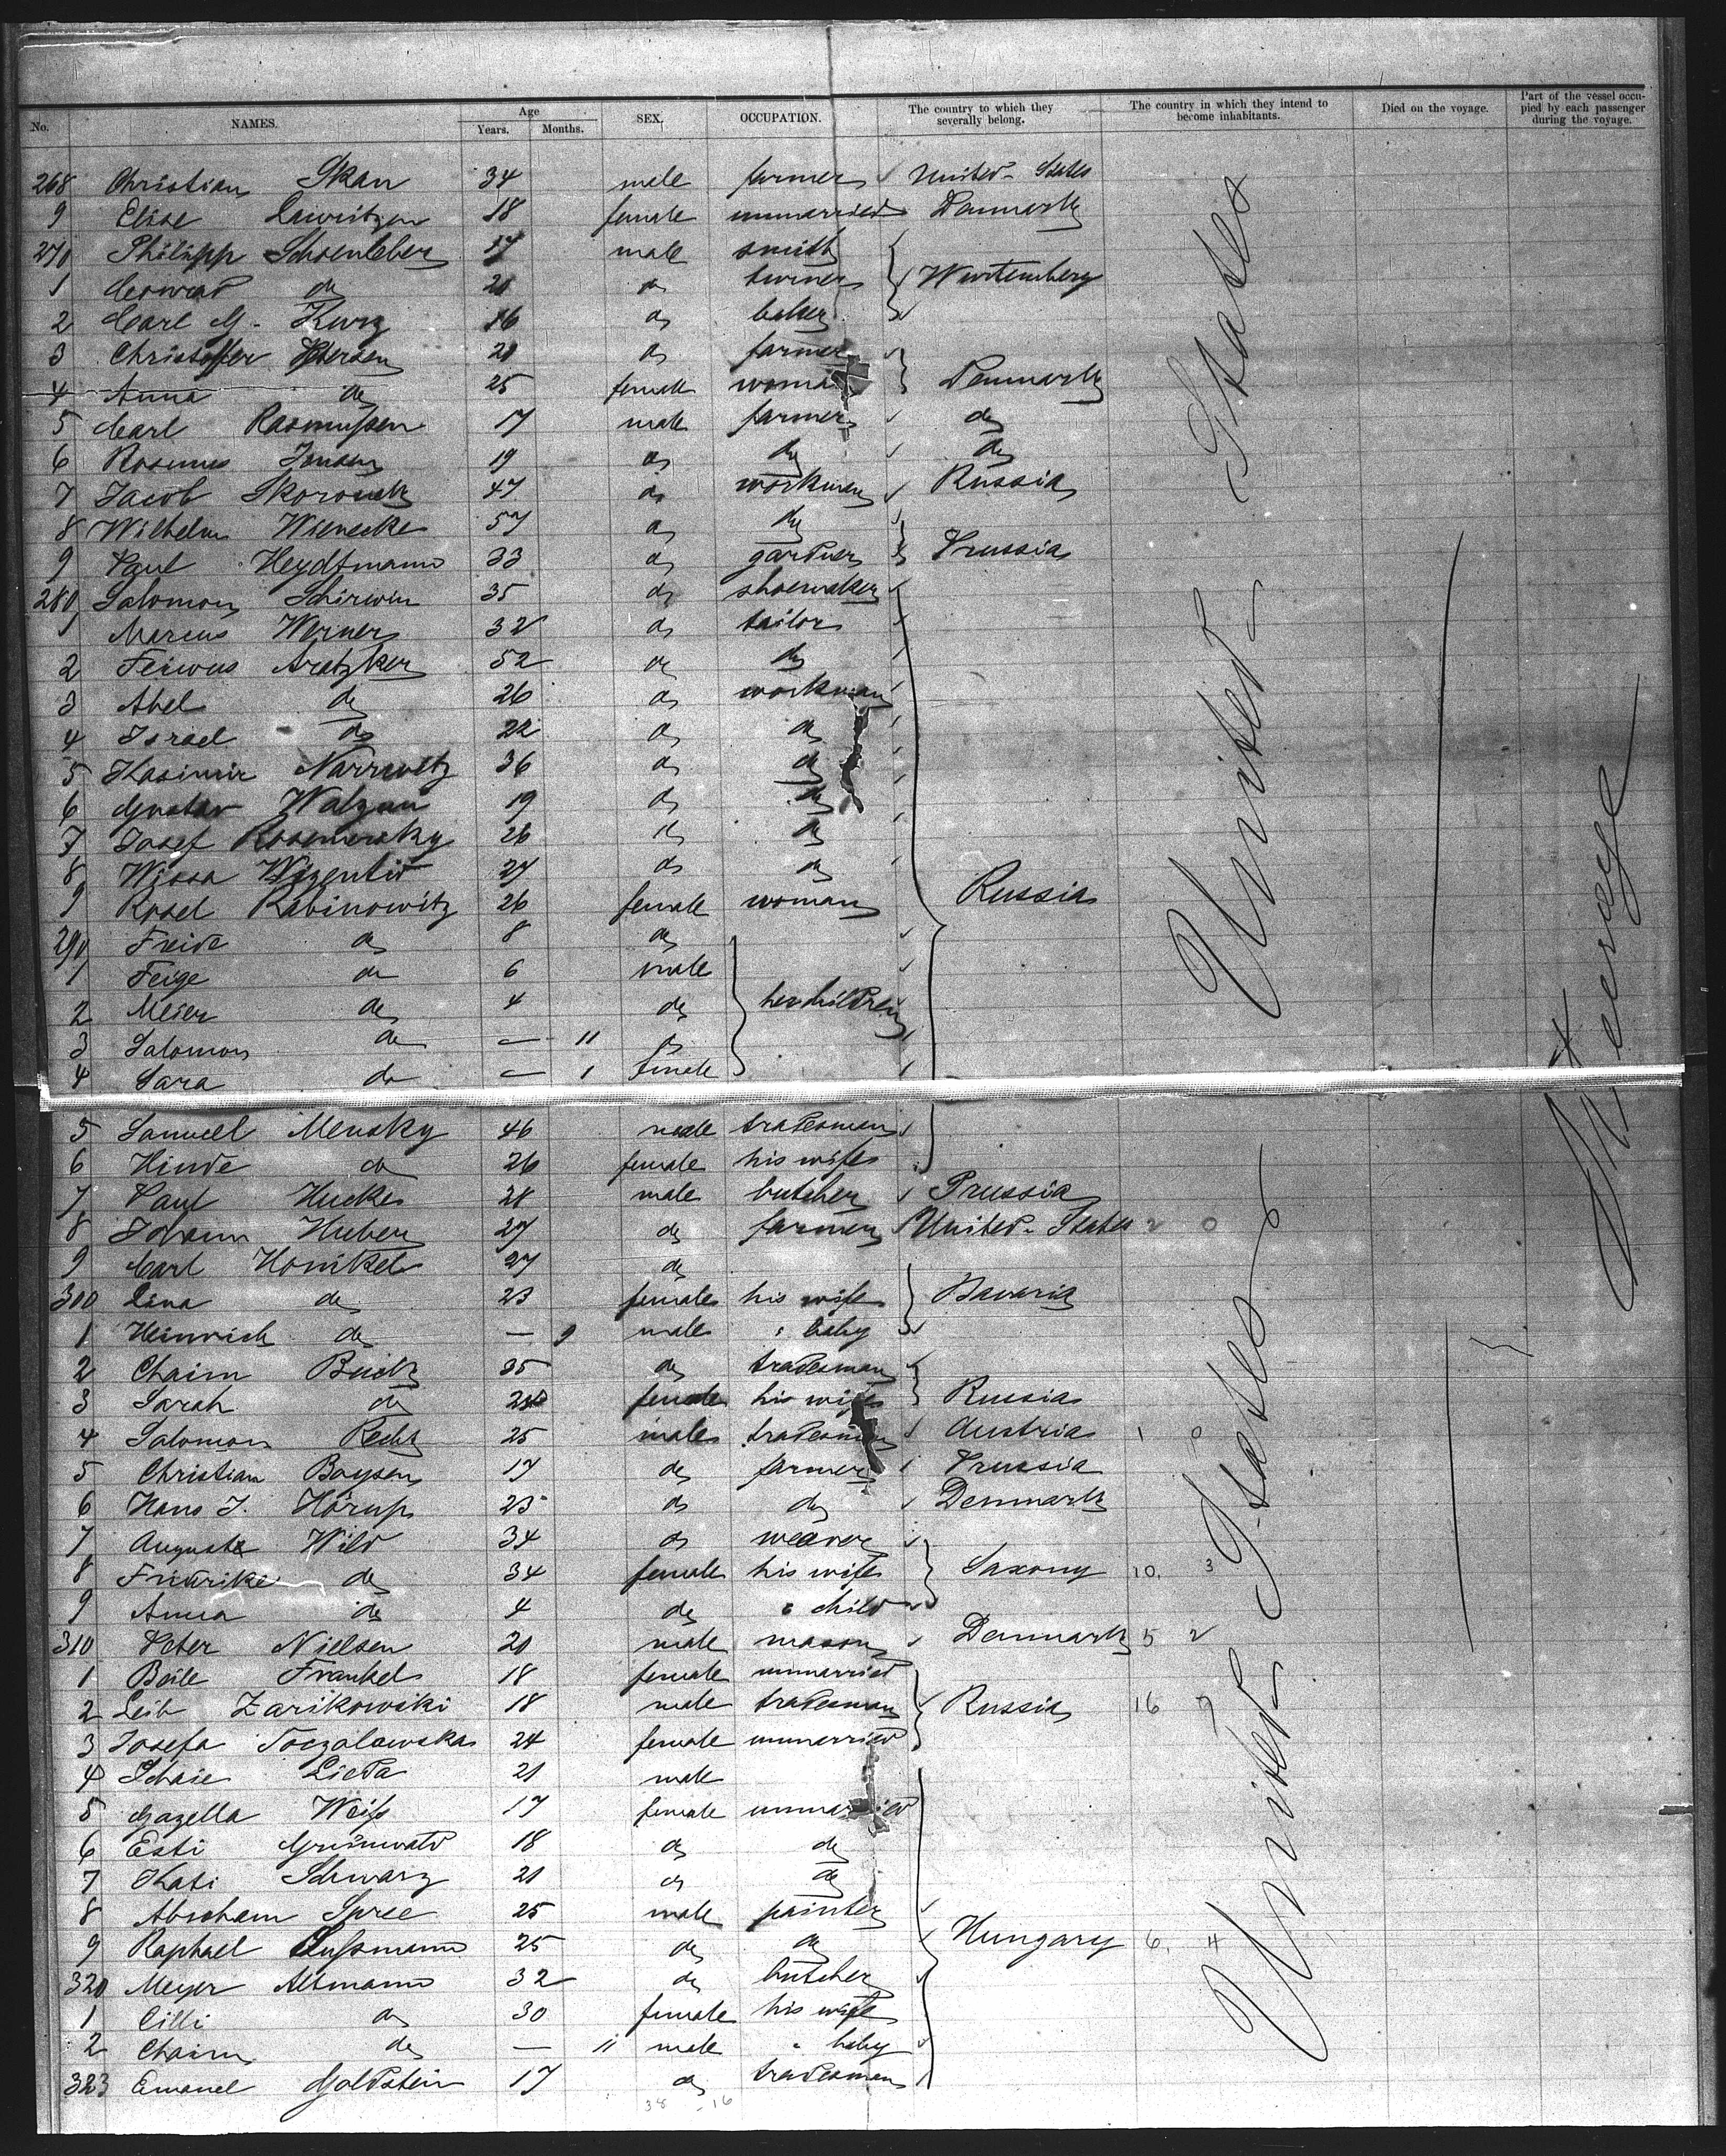 No. NAMES. Age Years. Months. SEX. OCCUPATION. The country to which they severally belong. The country in which they intend to become inhabitants. Died on the voyage. Part of the vessel occupied by each passenger during the voyage.
268 Christian Skau 34 male farmer United-States
9 Elise Lauritzen 18 female unmarried Denmark
270 Philipp Schoenleber 17 male smith
1 Conrad do 20 do turner Wurtemberg
2 Carl G. Kurz 16 do baker
3 Christoffer Petersen 20 do farmer
4 Anna do 25 female woman Denmark
5 Carl Rasmußen 17 male farmer do
6 Rasmus Jensen 19 do do do
7 Jacob Skoronek 47 do workman Russia
8 Wilhelm Wienecke 57 do do
9 Paul Heydtmann 33 do gardner Prussia
280 Salomon Schirwin 35 do shoemaker
1 Marcus Werner 32 do tailor
2 Feiwus Aratzker 52 do do
3 Abel do 26 do workman
4 Israel do 22 do do
5 Kasimir Narrwitz 36 do do
6 Gustav Walzun 19 do do
7 Josef Rosemersky 26 do do
8 Wissa Wizentid 27 do do
9 Rosel Rabinowitz 26 female woman Russia
290 Freide do 8 do
1 Feige do 6 male
2 Meier do 4 do her children
3 Salomon do — 11 do
4 Sara do — 1 female
5 Samuel Mensky 46 male tradesman
6 Hinde do 26 female his wife
7 Paul Huckes 28 male butcher Prussia
8 Johann Huber 27 do farmer United-States 2 0
9 Carl Honikel 27 do
300 Lina do 23 female his wife Bavaria
1 Heinrich do — 9 male " baby
2 Chaim Buck 35 do tradesman
3 Sarah do 24 female his wife Russia
4 Salomon Recht 25 male tradesman Austria 1 0
5 Christian Boysen 17 do farmer Prussia
6 Hans J. Hörup 23 do do Denmark
7 August Wild 34 do weaver
8 Friedrike do 34 female his wife Saxony 10. 3
9 Anna do 4 do " child
310 Peter Nielsen 20 male mason Denmark 5 2
1 Beile Frankel 18 female unmarried
2 Leib Zarikowski 18 male tradesman Russia 16 7
3 Josefa Toczalowska 24 female unmarried
4 Schaie Lieda 21 male
5 Gazella Weiß 17 female unmarried
6 Esti Grünwald 18 do do
7 Kati Schwarz 21 do do
8 Abraham Spree 25 male painter
9 Raphael Sußmann 25 do do Hungary 6. 4
320 Meyer Altmann 32 do butcher
1 Cilli do 30 female his wife
2 Chaim do — 11 male " baby
323 Emanuel Goldstein 17 do tradesman
38 - 16
United States
United States
Steerage